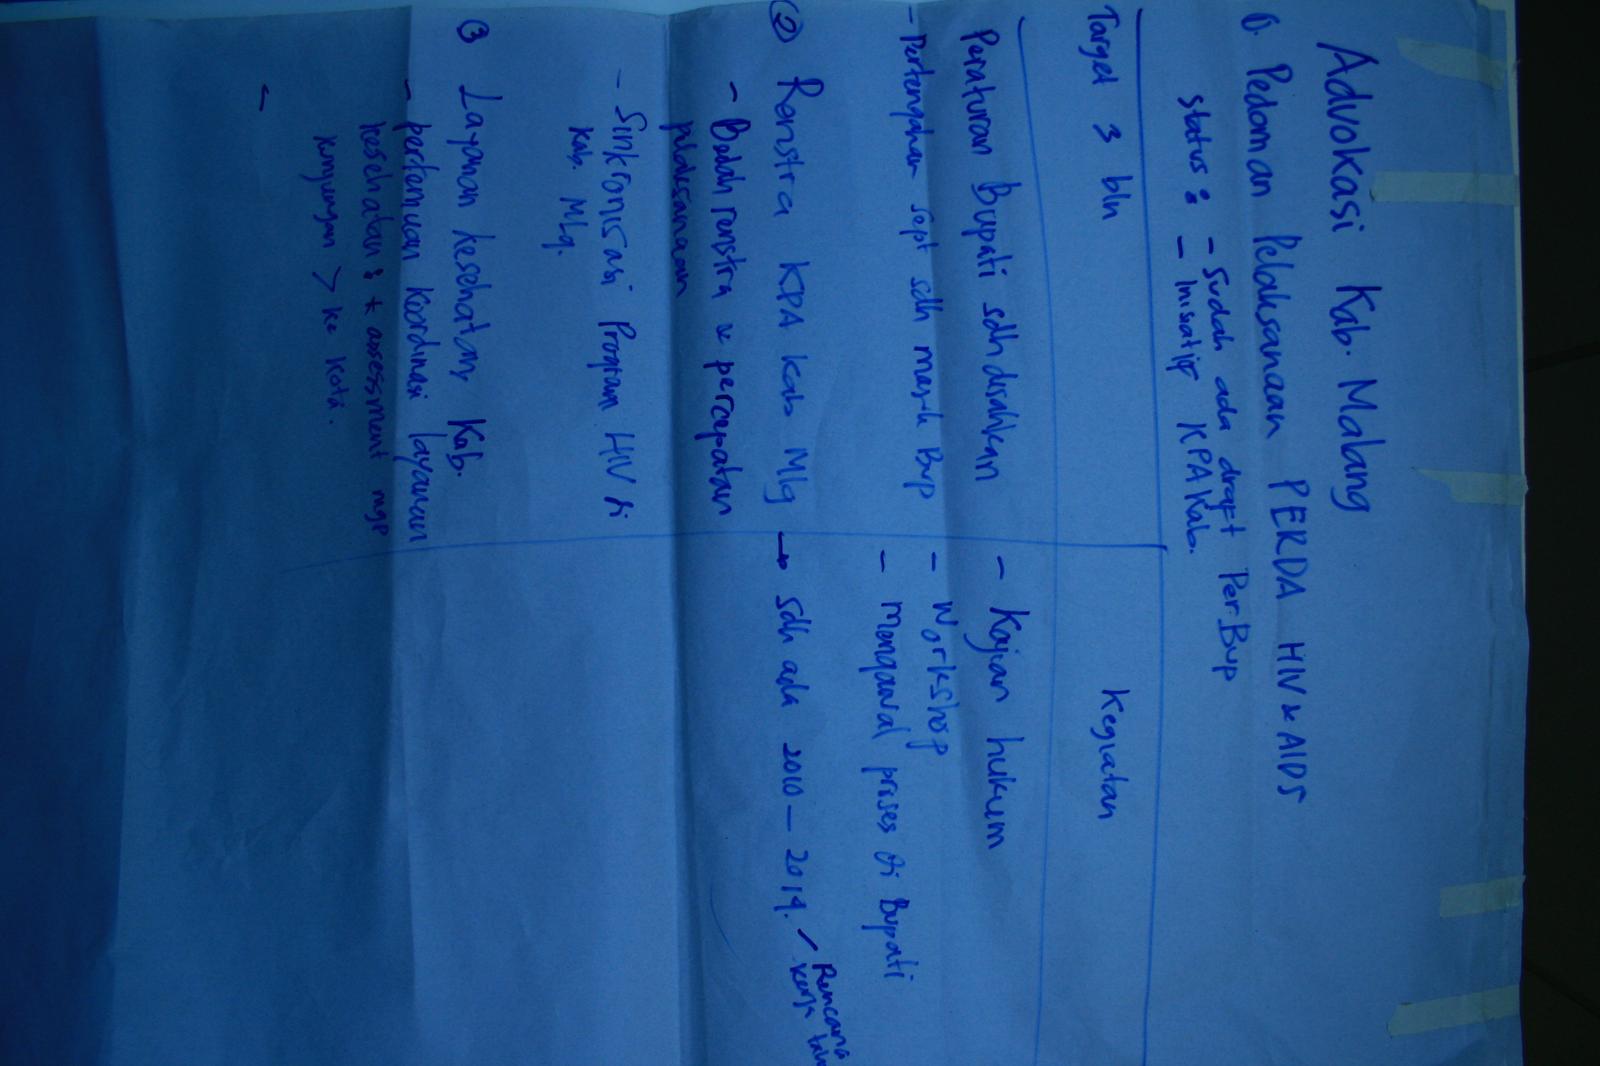 Advokasi Kab. Malang
1. Pedoman Pelaksanaan PERDA HIV & AIDS
Status : - Sudah ada draft Per.Bup
- Inisiatif KPA Kab.
Target 3 bln
Kegiatan
Peraturan Bupati sdh disahkan
- Pertengahan Sept sdh masuk Bup
- Kajian hukum
- Workshop
- Mengawal proses di Bupati
② Renstra KPA Kab Mlg → sdh ada 2010 – 2014. / Rencana
kerja
- Bedah renstra & percepatan
pelaksanaan
- Sinkronisasi Program HIV di
Kab. Mlg.
③ Layanan kesehatan, Kab.
- pertemuan koordinasi layanan
kesehatan : * assessment
kunjungan > ke kota.
-